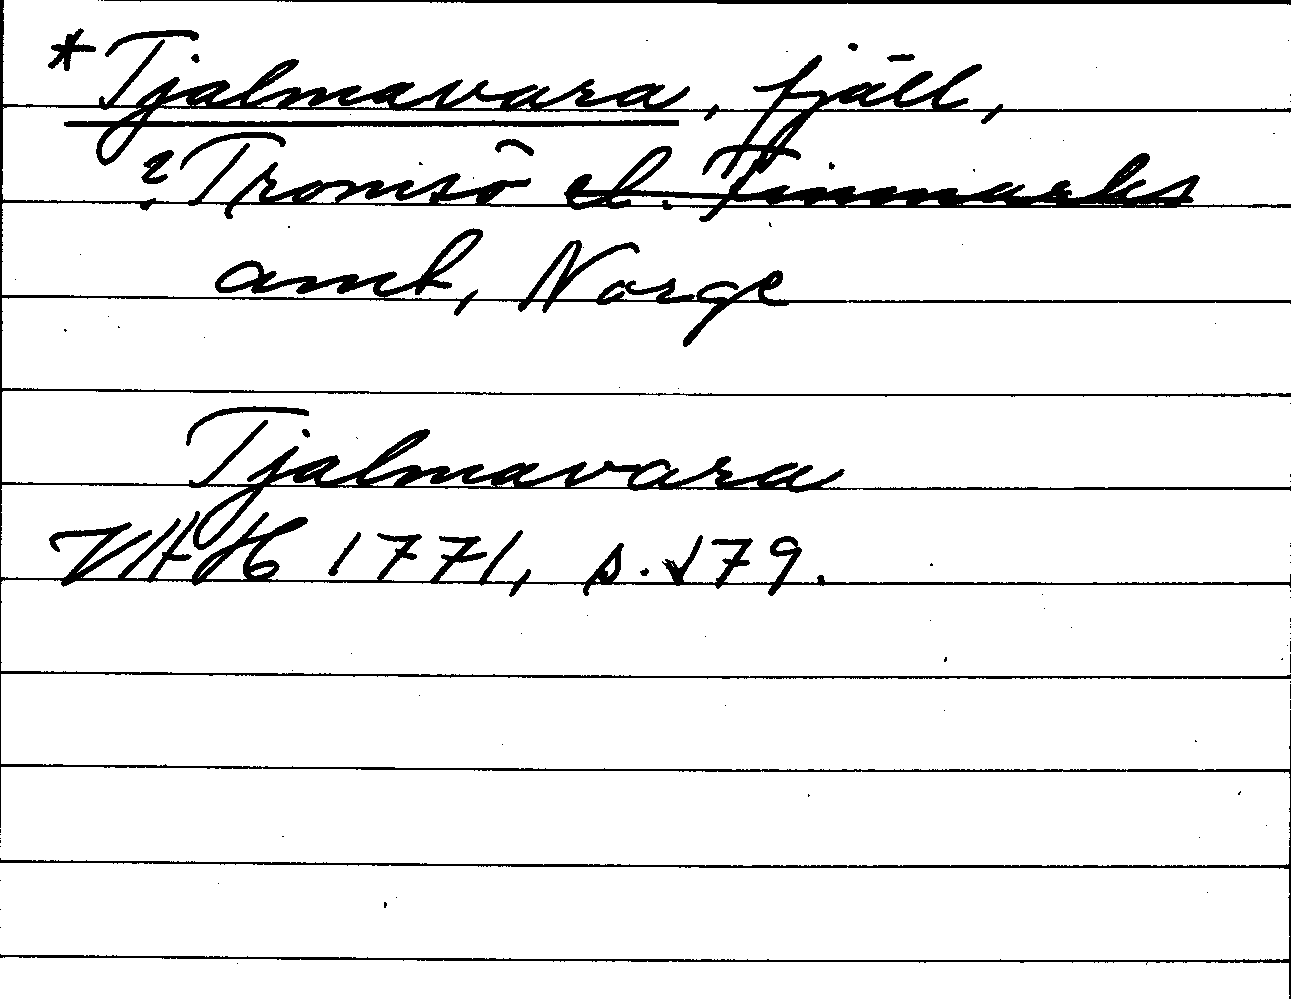 *Tjalmavara, fjäll,
?Tromsö el. Finmarks
amt, Norge
Tjalmavara
VHH 1771, s. 179.